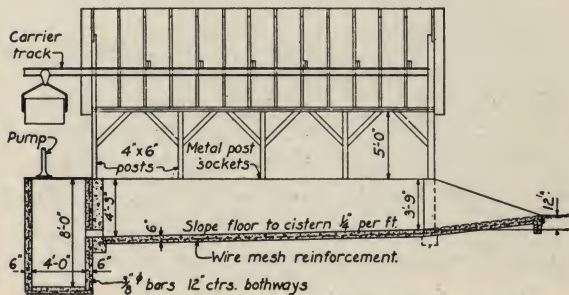 Carrier
track
Pump
4" x 6"
posts
Metal post
sockets
5'-0"
8'-0"
4'-3"
6"
Slope floor to cistern 1/4" per ft.
3'-9"
12"
Wire mesh reinforcement.
6"
4'-0"
6"
3/8" ϕ bars 12" ctrs. bothways